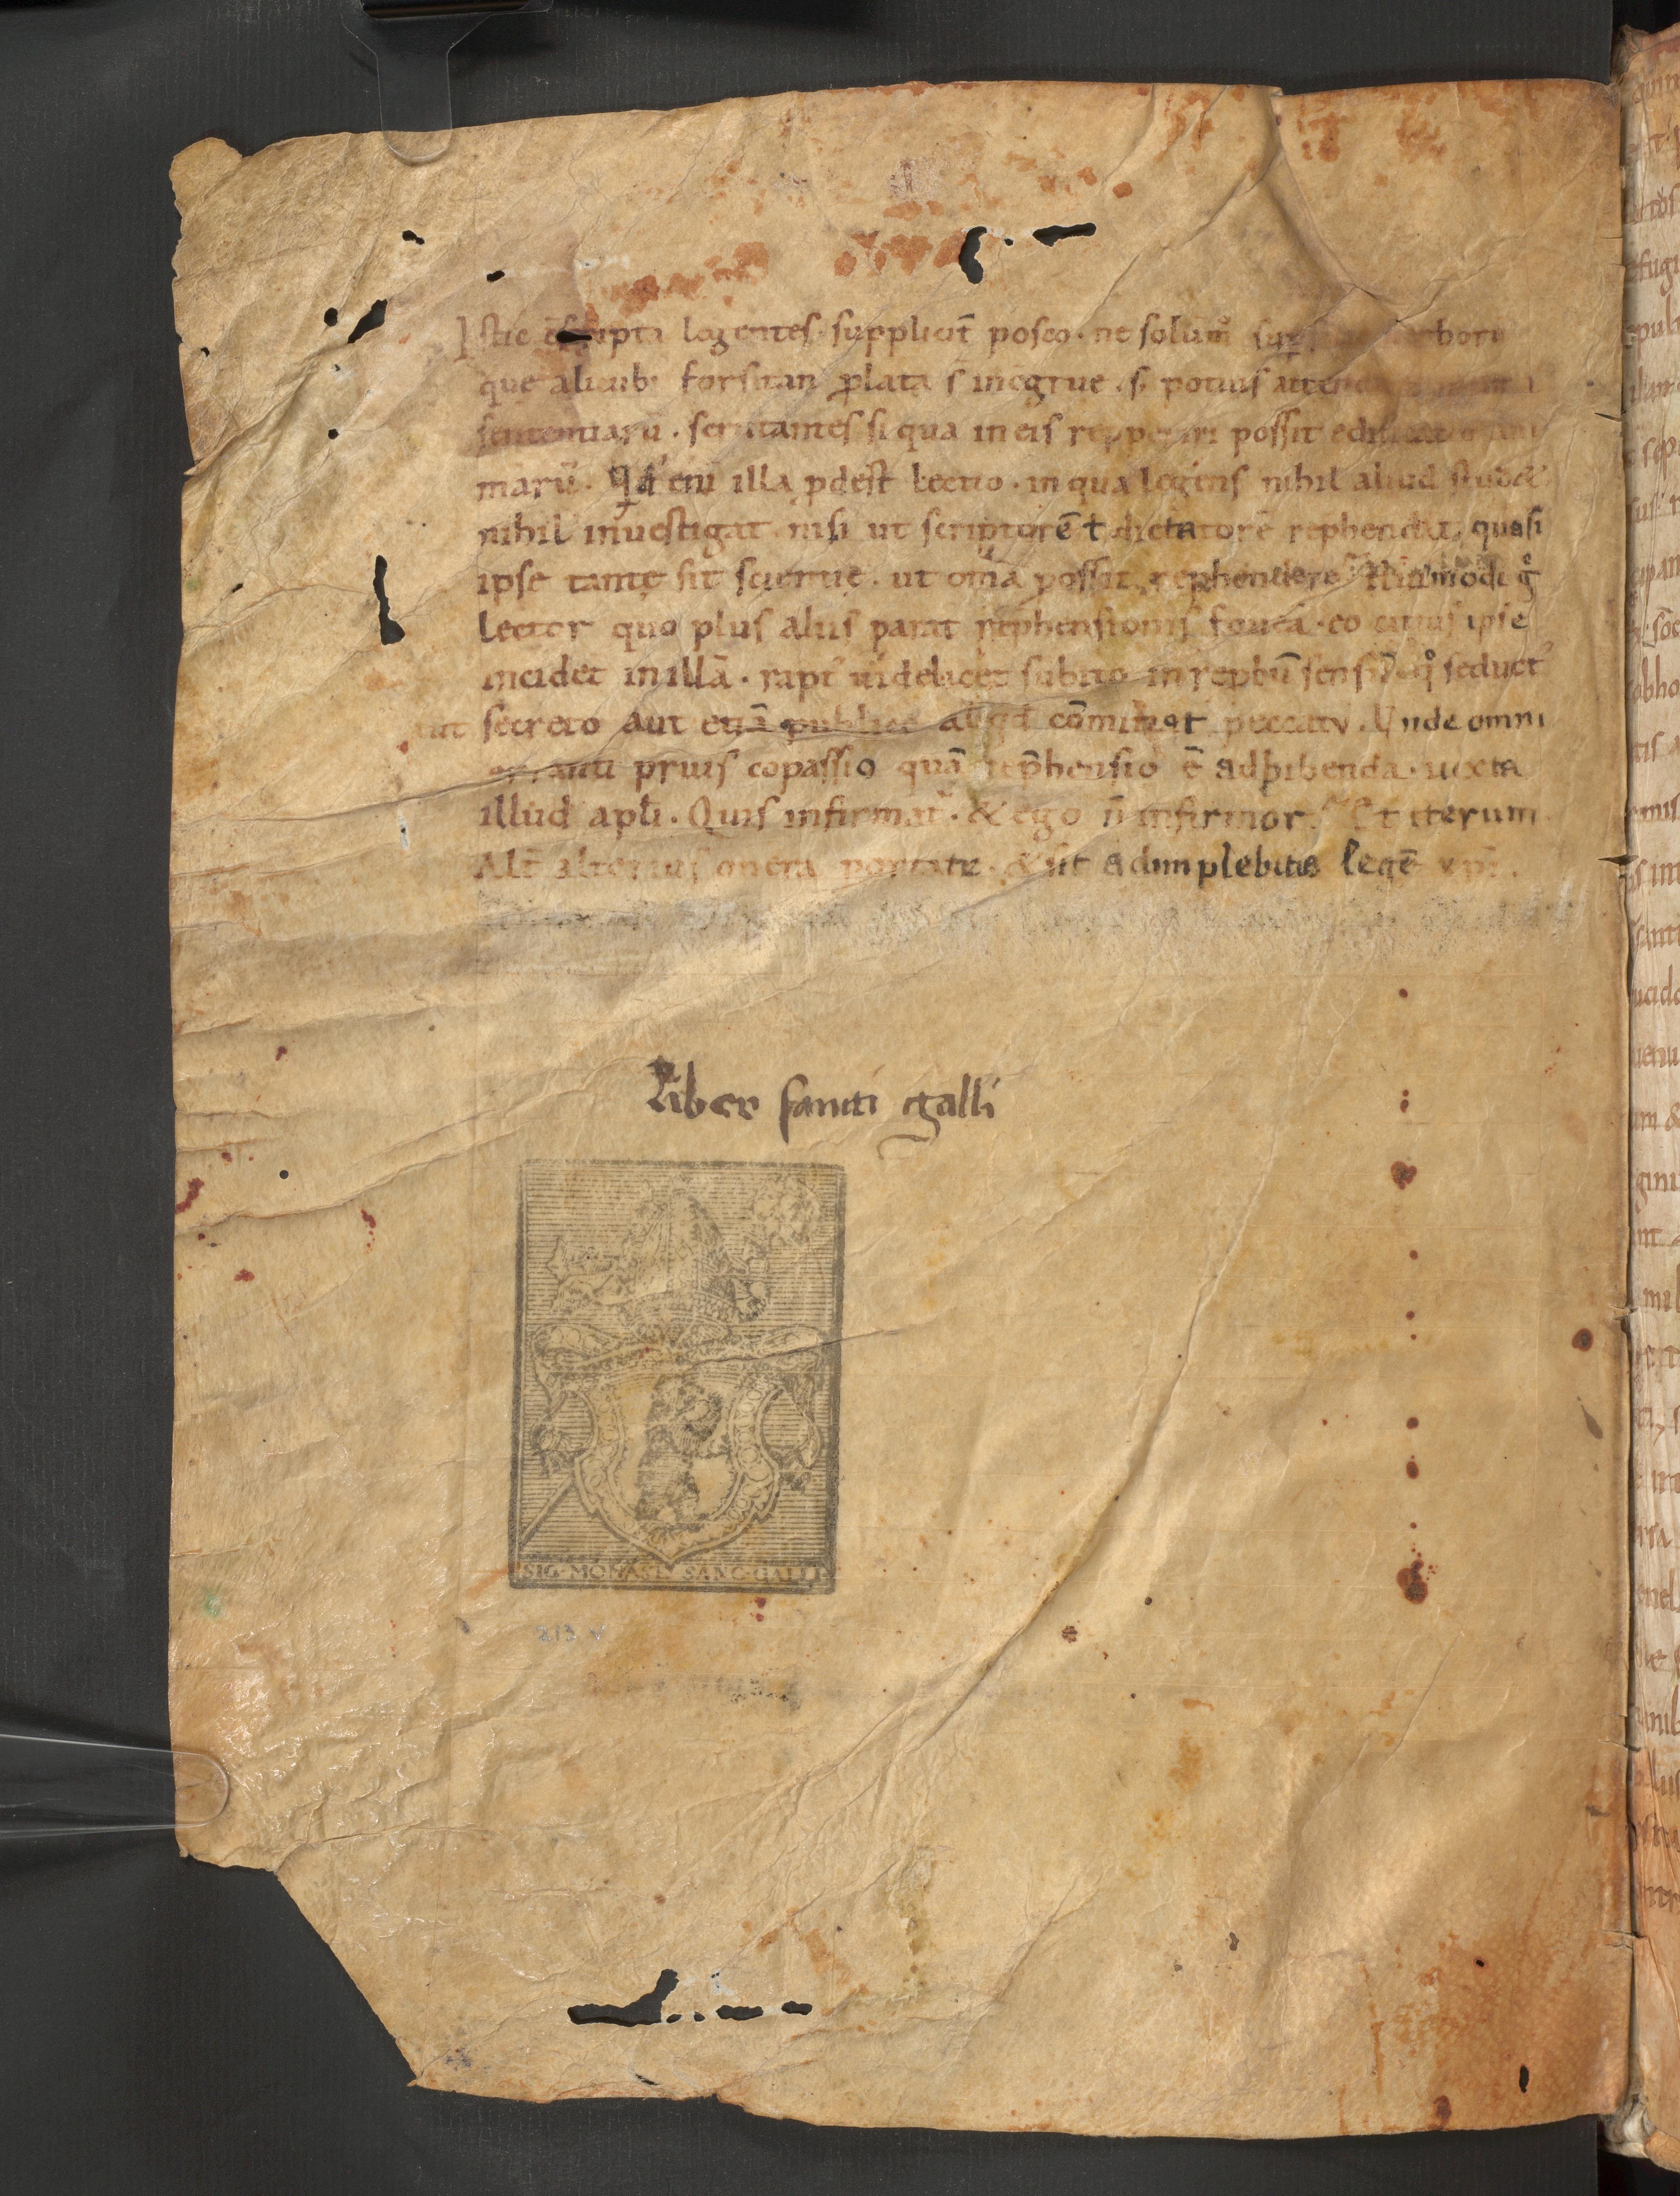 Istic cſcripta legentes · suppliciť posco · ne solum̊ sup
que alicubi forsitan ꝓlata s̄ incōgrue · s; potius attend
sententiarū · scrutantes si qua in eis repperiri possit edificatio ani
marū · Qd eni illa ꝓdest lectio · in qua legens nihil aliud stud&
nihil inuestigat nisi ut scriptorē ł dictatorē rephendat, quasi
ipse tantę sit scientię · ut om̄ia possit rephendere modi gͦ
Lector quo plus aliis parat rephensionis foueā · eo citius ipse
incidet in illā · rapť uidelicet subito in reptū sensū
aut secreto aut etiā publice aliqd cōmittat peccatū · Unde omni
erranti prius cōpassio quā rep̄hensio ē adhibenda · iuxta
illud apłi · Quis infirmať · & ego n̄ infirmor? Et iterum
Alť alterius onera portate · & sic adimplebitis legē xp̄i ·
Liber sancti galli
SIG · MONAST · SANC · GALLI
213 v